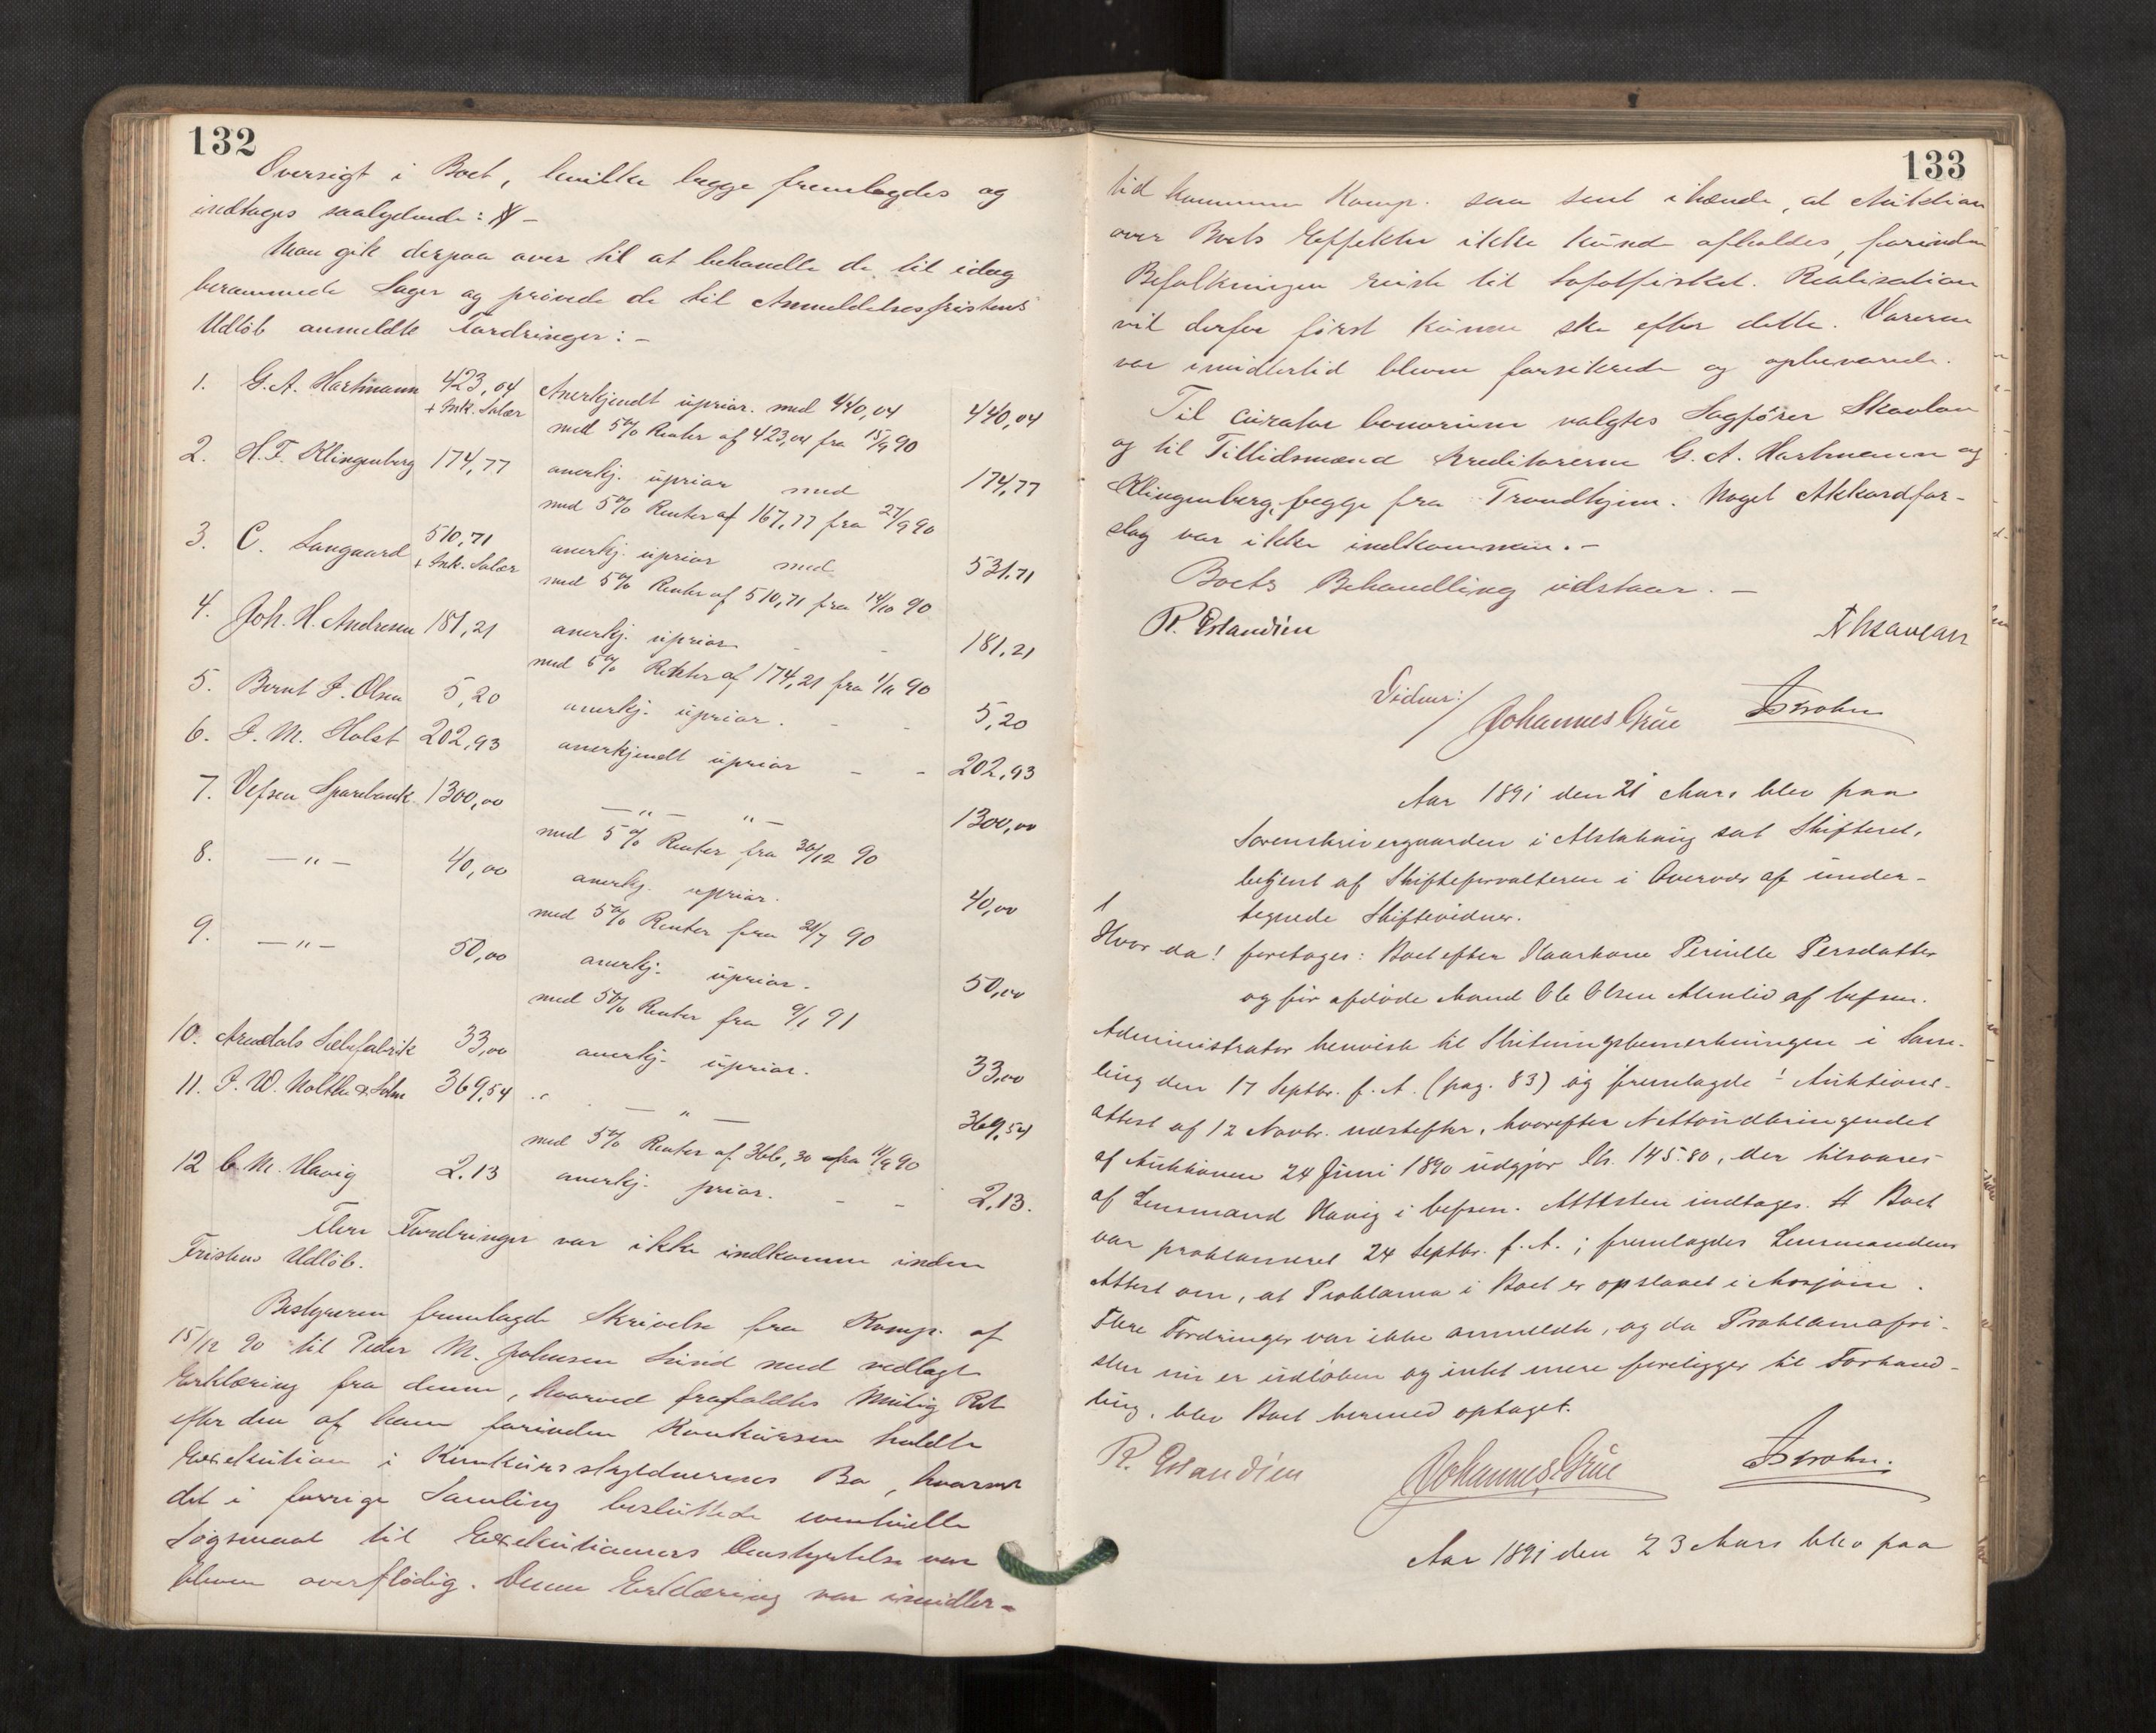 132
Oversigt i Boet, hvilke begge fremlagdes og
indtages saalydende: # –
Man gik derpaa over til at behandle de til idag
berammede Sager og prövede de til Anmeldelsesfristens
Udløb anmeldte Fordringer: –
1. G. A. Hartmann 423,04 + Ink. Salær Anerkjendt uprior. med 440,04 440,04
med 5% Renter af 423,04 fra 15/9 90
2. H. F. Klingenberg 174,77 anerkj. uprior med 174,77
med 5% Renter af 167,77 fra 27/9 90
3. C. Langaard 510,71 + Ink. Salær anerkj. uprior med 531,71
med 5% Renter af 510,71 fra 14/10 90
4. Joh. H. Andresen 181,21 anerkj. uprior - - 181,21
med 6% Renter af 174,21 fra 1/11 90
5. Bernt J. Olsen 5,20 anerkj. uprior. - - 5,20
6. J. M. Holst 202,93 anerkjendt uprior - - 202,93
7. Vefsen Sparebank 1300,00 — " — " — 1300,00
med 5% Renter fra 30/12 90
8. — " — 40,00 anerkj. uprior. 40,00
med 5% Renter fra 21/7 90
9. — " — 50,00 anerkj. uprior. 50,00
med 5% Renter fra 9/1 91
10. Arendals Sæbefabrik 33,00 anerkj. uprior. 33,00
11. J. W. Moltke & Søhn 369,54 — " — 369,54
med 5% Renter af 366,30 fra 11/9 90
12 C. M. Havig 2.13 anerkj. prior. - - 2,13.
Flere Fordringer var ikke indkomne inden
Fristens Udløb.
Bestyreren fremlagde Skrivelse fra Komp. af
15/12 90 til Peder M. Johnsen Lund med vedlagt
Erklæring fra denne, hvorved frafaldtes mulig Ret
efter den af ham forinden Konkursen holdte
Exekution i Konkursskyldnerens Bo, hvorved
det i forrige Samling besluttede eventuelle
Søgsmaal til Exekutionens Omstyrtelse var
bleven overflødig. Denne Erklæring var imidler-
133
tid kommen Komp. saa sent ihænde, at Auktion
over Boets Effekter ikke kunde afholdes, forinden
Befolkningen reiste til Lofotfisket. Realisation
vil derfor først kunne ske efter dette. Varerne
var imidlertid blevne forsikrede og opbevarede.
Til curator bonorum valgtes Sagfører Skavlan
og til Tillidsmænd Kreditorerne G. A. Hartmann og
Klingenberg, begge fra Trondhjem. Noget Akkordfor-
slag var ikke indkommen. –
Boets Behandling udstaar. –
R. Eslandien
Vidner:/ Johannes Grue
Aar 1891 den 21 Mars blev paa
Sorenskrivergaarden i Alstahaug sat Skifteret,
betjent af Skifteforvalteren i Overvær af under-
tegnede Skiftevidner.
1
Hvor da! foretages: Boet efter Kaarkone Pernille Persdatter
og før afdøde Mand Ole Olsen Alenlid af Vefsen.
Administrator henviste til Slutningsbemerkningen i Sam-
ling den 17 Septbr. f. A. (pag. 83) og fremlagde ! Auktions-
attest af 12 Novbr. næstefter, hvorefter Nettoudbringendet
af Auktionen 24 Juni 1890 udgjør Kr. 145.80, der tilsvares
af Lensmand Havig i Vefsen. Attesten indtages. # Boet
var proklameret 24 Septbr. f. A.; fremlagdes Lensmandens
Attest om, at Proklama i Boet er opslaaet i Mosjøen.
Flere Fordringer var ikke anmeldte, og da Proklamafri-
sten nu er udløben og intet mere foreligger til Forhand-
ling, blev Boet hermed optaget.
R. Eslandien Johannes Grue
Aar 1891 den 23 Mars blev paa